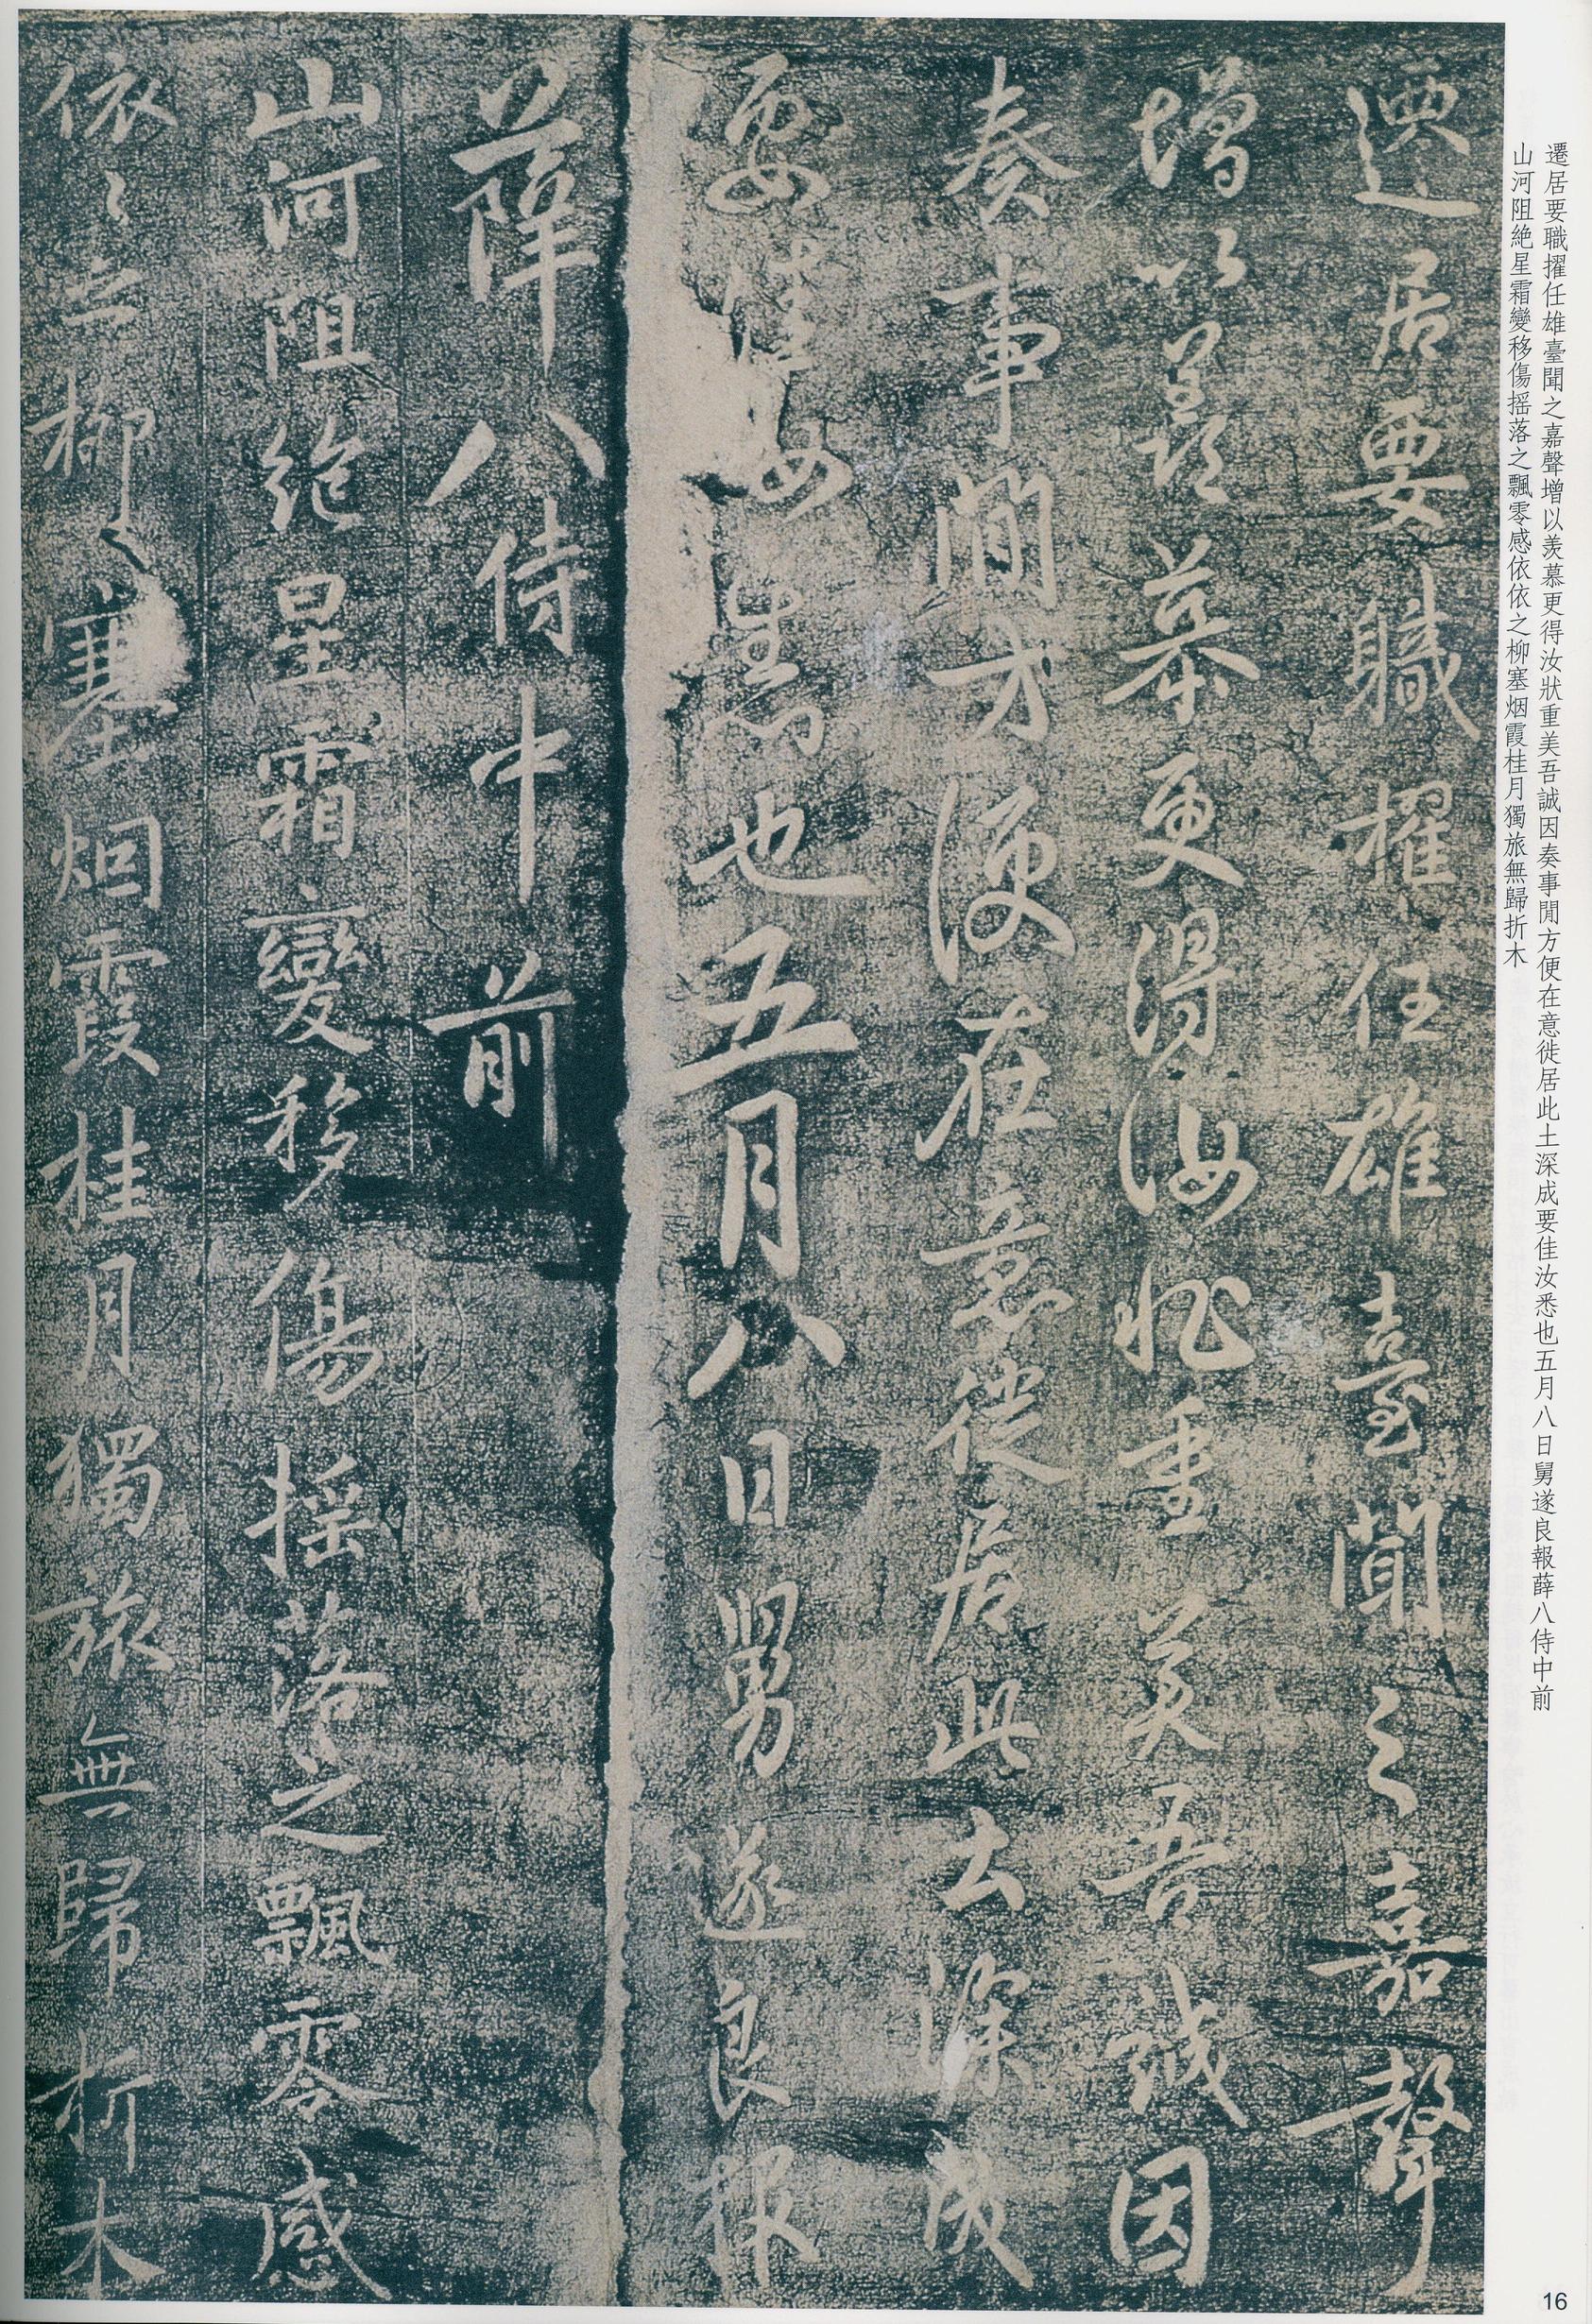 遷居要職擢任雄臺聞之嘉聲增以羨慕更得汝狀重美吾誠因奏事閒方便在意徙居此土深成要佳汝悉也五月八日舅遂良報薛八侍中前
山河阻絕星霜變移傷搖落之飄零感依依之柳塞烟霞桂月獨旅無歸折木
遷居要職擢任雄臺聞之嘉聲
增以羨慕更得汝狀重美吾誠因
奏事閒方便在意徙居此土深成
要佳汝悉也五月八日舅遂良報
薛八侍中前
山河阻絕星霜變移傷搖落之飄零感
依〻之柳〻塞烟霞桂月獨旅無歸折木
16